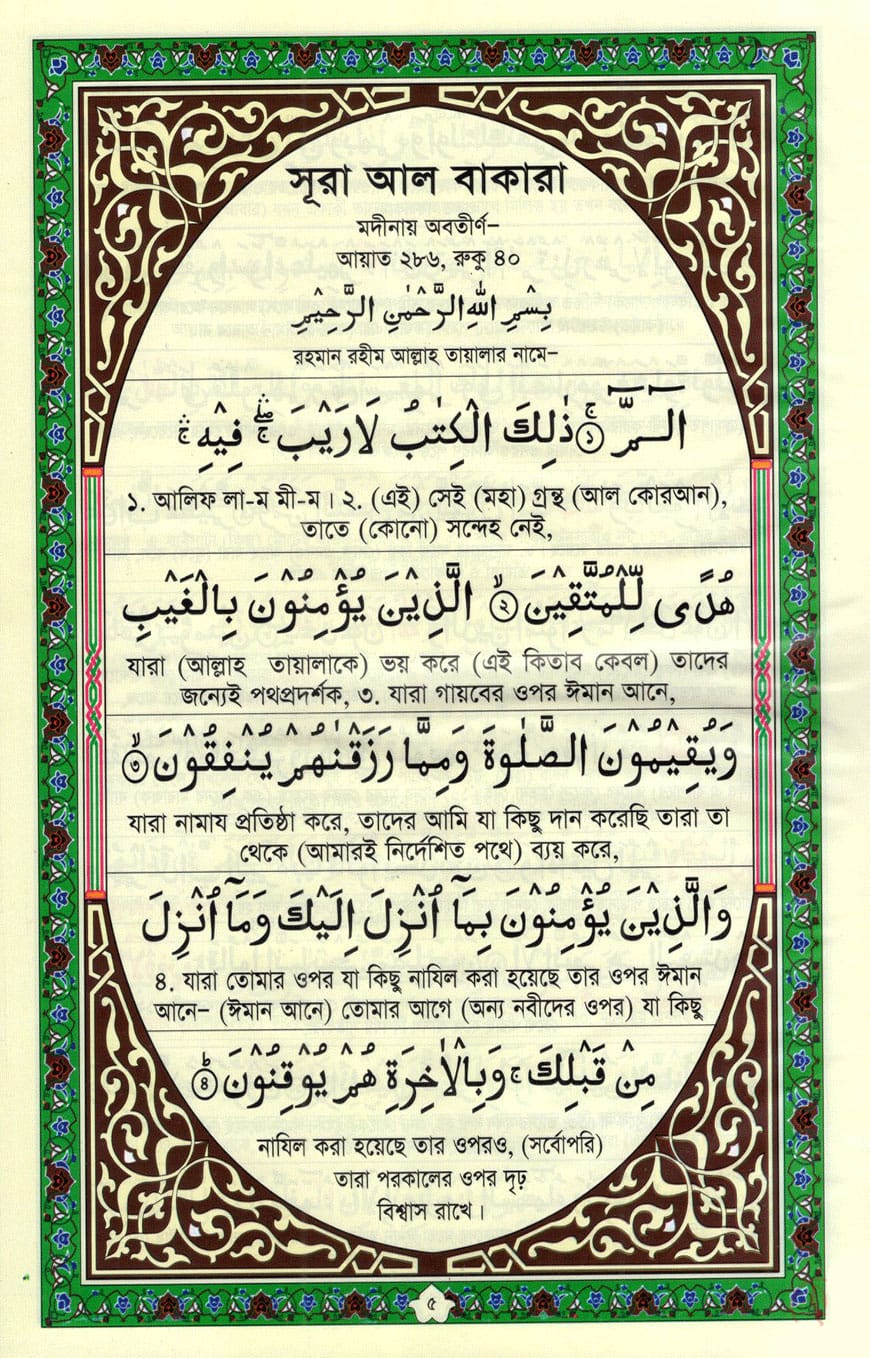 সূরা আল বাকারা
মদীনায় অবতীর্ণ–
আয়াত ২৮৬, রুকু ৪০
بِسْمِ اللهِ الرَّحْمٰنِ الرَّحِيْمِ
রহমান রহীম আল্লাহ তায়ালার নামে–
الٓـمّٓ ۚ ① ذٰلِكَ الْكِتٰبُ لَا رَيْبَ ۛۖۚ فِيْهِ ۛۚ
১. আলিফ লা-ম মী-ম। ২. (এই) সেই (মহা) গ্রন্থ (আল কোরআন),
তাতে (কোনো) সন্দেহ নেই,
هُدًى لِّلْمُتَّقِيْنَ ۙ ② الَّذِيْنَ يُؤْمِنُوْنَ بِالْغَيْبِ
যারা (আল্লাহ তায়ালাকে) ভয় করে (এই কিতাব কেবল) তাদের
জন্যেই পথপ্রদর্শক, ৩. যারা গায়বের ওপর ঈমান আনে,
وَيُقِيْمُوْنَ الصَّلٰوةَ وَمِمَّا رَزَقْنٰهُمْ يُنْفِقُوْنَ ۙ ③
যারা নামায প্রতিষ্ঠা করে, তাদের আমি যা কিছু দান করেছি তারা তা
থেকে (আমারই নির্দেশিত পথে) ব্যয় করে,
وَالَّذِيْنَ يُؤْمِنُوْنَ بِمَآ اُنْزِلَ اِلَيْكَ وَمَآ اُنْزِلَ
৪. যারা তোমার ওপর যা কিছু নাযিল করা হয়েছে তার ওপর ঈমান
আনে– (ঈমান আনে) তোমার আগে (অন্য নবীদের ওপর) যা কিছু
مِنْ قَبْلِكَ ۚ وَبِالْاٰخِرَةِ هُمْ يُوْقِنُوْنَ ؕ ④
নাযিল করা হয়েছে তার ওপরও, (সর্বোপরি)
তারা পরকালের ওপর দৃঢ়
বিশ্বাস রাখে।
৫